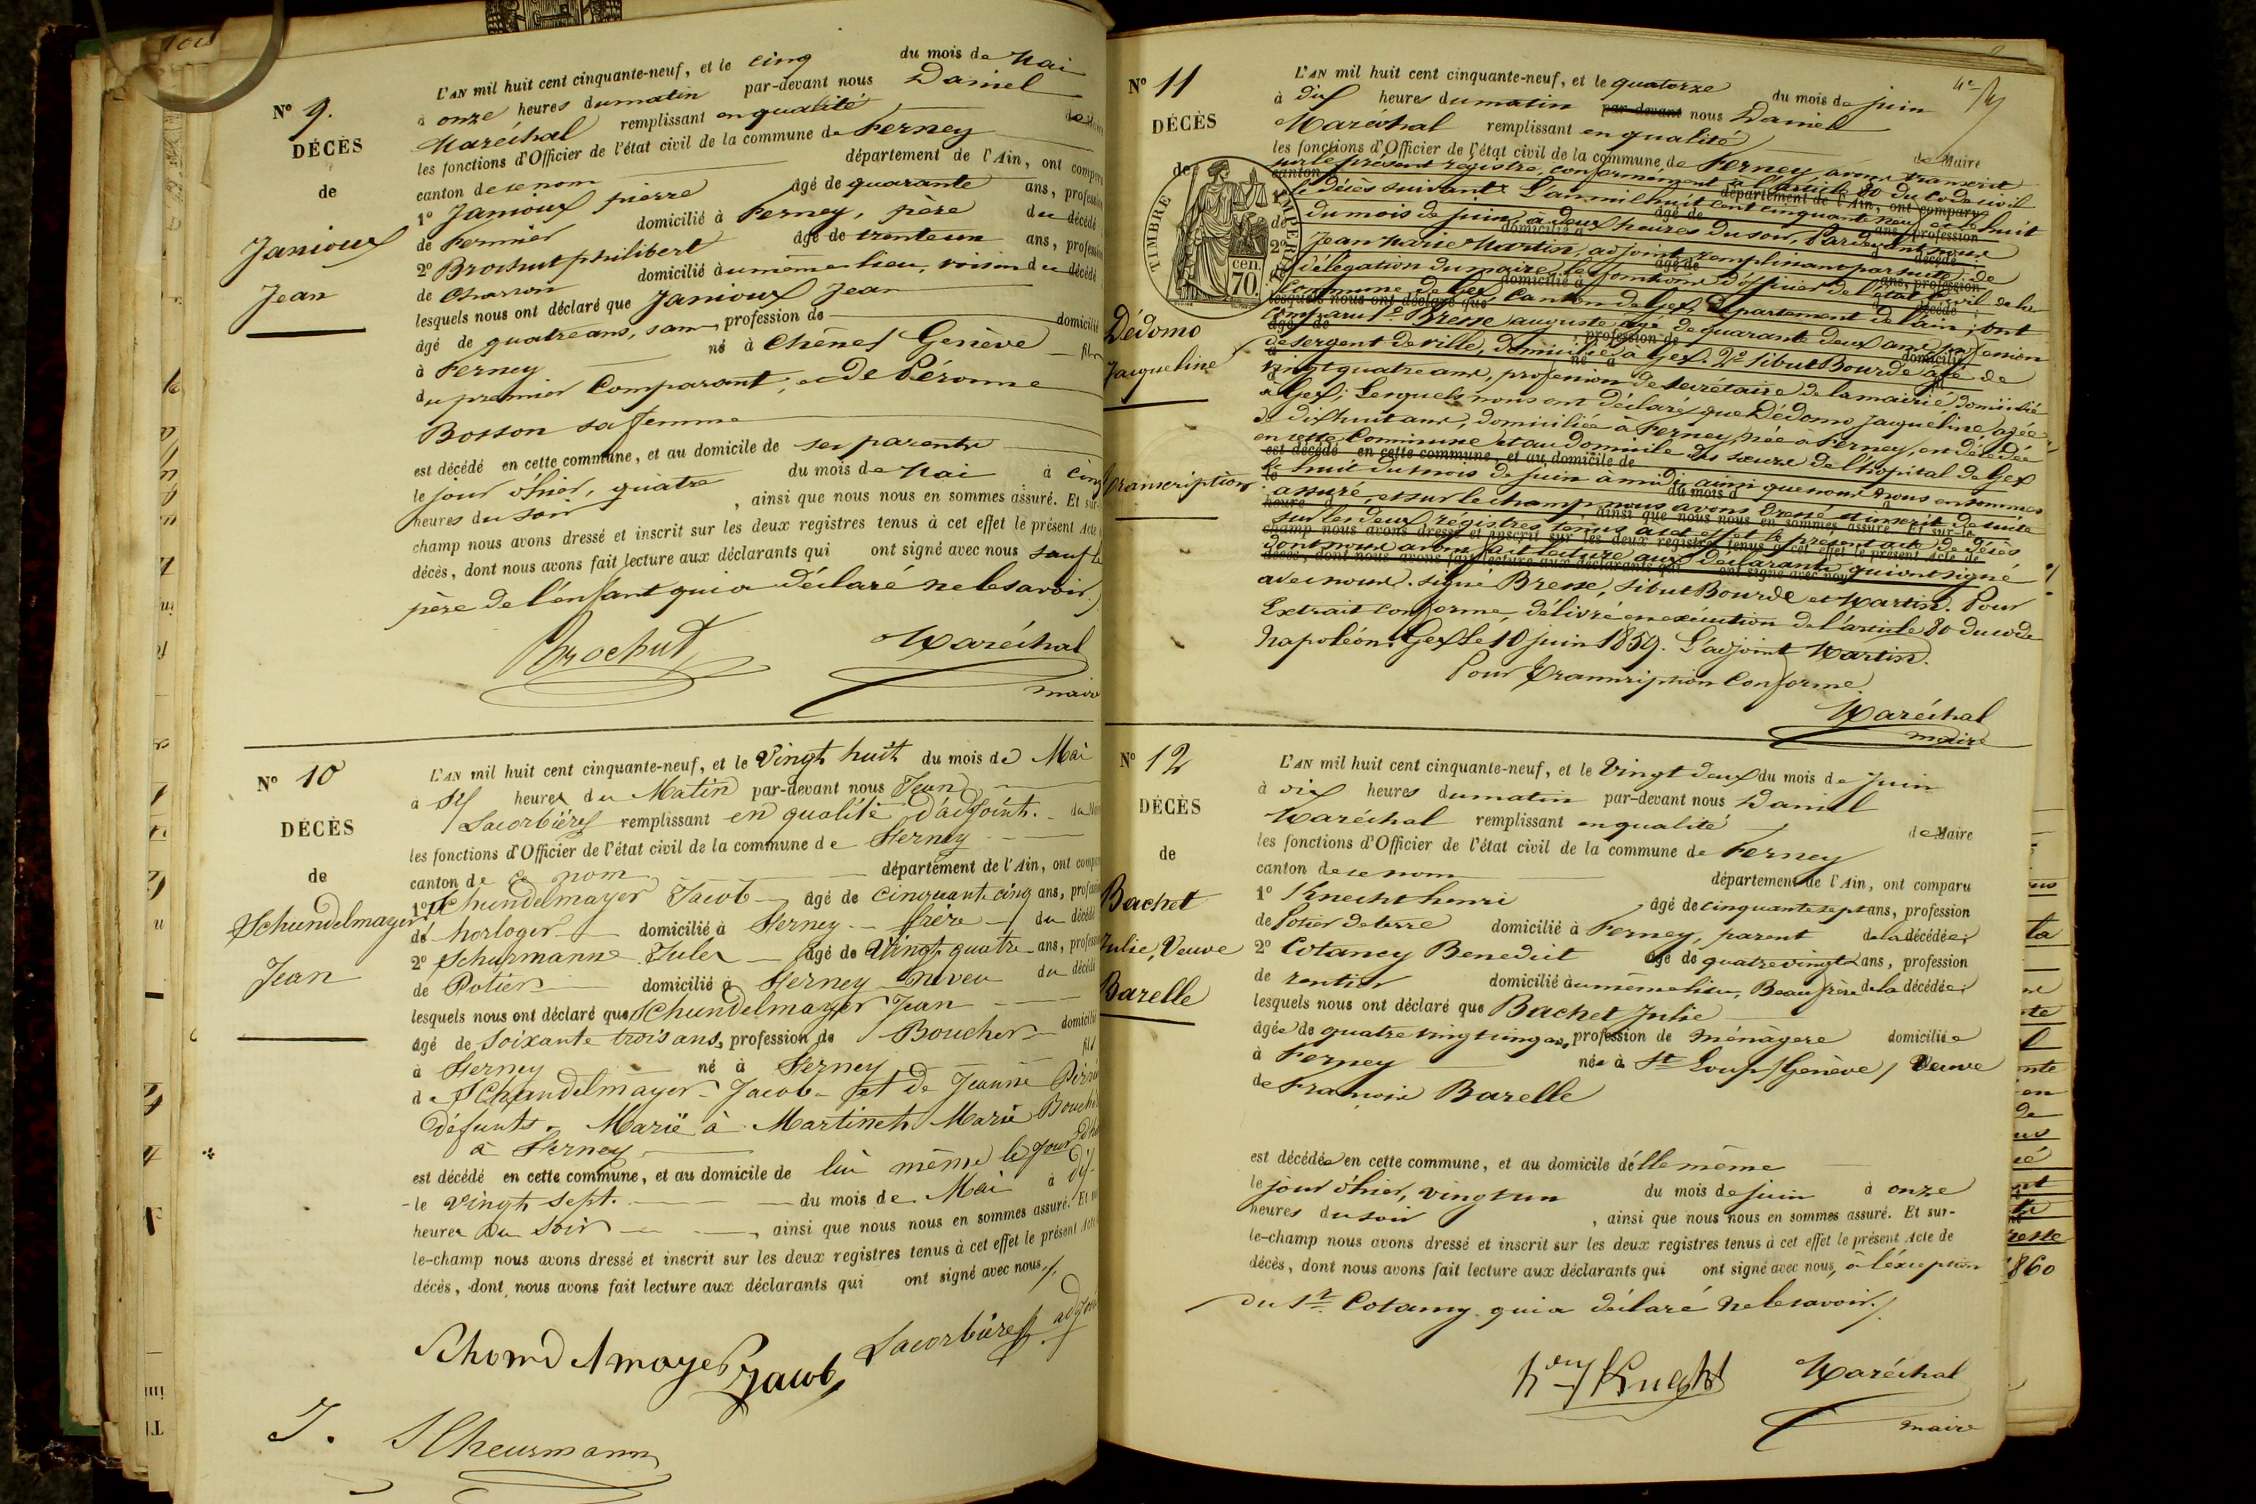 N° 9.
DÉCÈS
de
Janioux
Jean
L'AN mil huit cent cinquante-neuf, et le cinq du mois de Mai
à onze heures du matin par-devant nous Daniel
Maréchal remplissant en qualité
les fonctions d'Officier de l'état civil de la commune de Ferney
canton de ce nom département de l'Ain, ont comparu
1° Janioux pierre âgé de quarante ans, profession
de Fermier domicilié à Ferney, père du décédé
2° Brochut philibert âgé de trente un ans, profession
de Charron domicilié au même lieu, voisin du décédé
lesquels nous ont déclaré que Janioux Jean
âgé de quatre ans, sans profession de domicilié
à Ferney né à Chênes Genève fils
du premier Comparant, et de Péronne
Bosson sa femme
est décédé en cette commune, et au domicile de ses parents
le jour d'hier, quatre du mois de Mai à cinq
heures du soir, ainsi que nous nous en sommes assuré. Et sur-
champ nous avons dressé et inscrit sur les deux registres tenus à cet effet le présent Acte
décès, dont nous avons fait lecture aux déclarants qui ont signé avec nous sauf le
père de l'enfant qui a déclaré ne le savoir.
Brochut
Maréchal
maire
N° 10
DÉCÈS
de
Schundelmayer
Jean
L'AN mil huit cent cinquante-neuf, et le Vingt huit du mois de Mai
à Dix heures du Matin par-devant nous Jean
Lacorbière remplissant en qualité d'adjoint.
les fonctions d'Officier de l'état civil de la commune de Ferney
canton de ce nom département de l'Ain, ont comparu
1° Schundelmayer Jacob âgé de cinquante cinq ans, profession
de horloger domicilié à Ferney frère du décédé
2° Schurmanne Jules âgé de Vingt quatre ans, profession
de Potier domicilié à Ferney neveu du décédé
lesquels nous ont déclaré que Schundelmayer Jean
âgé de Soixante trois ans, profession de Boucher domicilié
à Ferney né à Ferney fils
de Schundelmayer Jacob et de Jeanne
défunts. Marié à Martinet Marie
à Ferney
est décédé en cette commune, et au domicile de lui même le jour d'hier
le vingt sept. du mois de Mai à Dix
heures du Soir, ainsi que nous nous en sommes assuré. Et sur
le-champ nous avons dressé et inscrit sur les deux registres tenus à cet effet le présent Acte
décès, dont nous avons fait lecture aux déclarants qui ont signé avec nous
Jacob
Lacorbière adjoint
J. Scheurmann
N° 11
DÉCÈS
de
TIMBRE IMPERIAL
70 cen.
Dédomo
Jacqueline
Transcription
L'AN mil huit cent cinquante-neuf, et le quatorze du mois de juin
à dix heures du matin par-devant nous Daniel
Maréchal remplissant en qualité de Maire
les fonctions d'Officier de l'état civil de la commune de Ferney, avons transcrit
sur le présent registre, conformément à l'article 80 du Code civil
le décès suivant: L'an mil huit cent cinquante neuf et le huit
du mois de juin, à deux heures du soir, Pardevant nous
Jean Marie Martin, adjoint remplissant par suite de
délégation du maire, les fonctions d'officier de l'état Civil de la
Commune de Gex, Canton de Gex, Département de l'ain; ont
comparu 1° Bresse auguste âgé de quarante deux ans, profession
de sergent de ville, domicilié à Gex. 2° Sibut Bourde âgé de
vingt quatre ans, profession de secrétaire de la mairie, domicilié
à Gex; Lesquels nous ont déclaré que Dédomo Jacqueline, agée
de dixhuit ans, domiciliée à Ferney, née à Ferney, est décédée
en cette Commune et au domicile des soeurs de l'hopital de Gex
le huit du mois de juin à midi, ainsi que nous nous en sommes
assuré, et sur le champ nous avons dressé et inscrit de suite
sur les deux régistres tenus à cet effet le présent acte de décès
dont nous avons fait lecture aux déclarants qui ont signé
avec nous. Signé Bresse, Sibut Bourde et Martin. Pour
Extrait conforme, délivré en exécution de l'article 80 du code
Napoléon, Gex le 10 juin 1859. L'adjoint Martin.
Pour Transcription Conforme
Maréchal
maire
N° 12
DÉCÈS
de
Bachet
Julie, Veuve
Barelle
L'AN mil huit cent cinquante-neuf, et le Vingt deux du mois de Juin
à dix heures du matin par-devant nous Daniel
Maréchal remplissant en qualité de Maire
les fonctions d'Officier de l'état civil de la commune de Ferney
canton de ce nom département de l'Ain, ont comparu
1° Knecht henri âgé de cinquante sept ans, profession
de Potier de terre domicilié à Ferney, parent de la décédée;
2° Cotancy Benedict âgé de quatrevingts ans, profession
de rentier domicilié au même lieu, Beau frère de la décédée;
lesquels nous ont déclaré que Bachet Julie
âgée de quatre vingt cinq ans, profession de ménagère domiciliée
à Ferney née à St Loup / Genève / Veuve
de François Barelle
est décédée en cette commune, et au domicile d'elle même
le jour d'hier, vingt un du mois de juin à onze
heures du soir, ainsi que nous nous en sommes assuré. Et sur-
le-champ nous avons dressé et inscrit sur les deux registres tenus à cet effet le présent Acte de
décès, dont nous avons fait lecture aux déclarants qui ont signé avec nous, à l'éxception
du Sr Cotancy qui a déclaré ne le savoir.
Maréchal
maire
1860